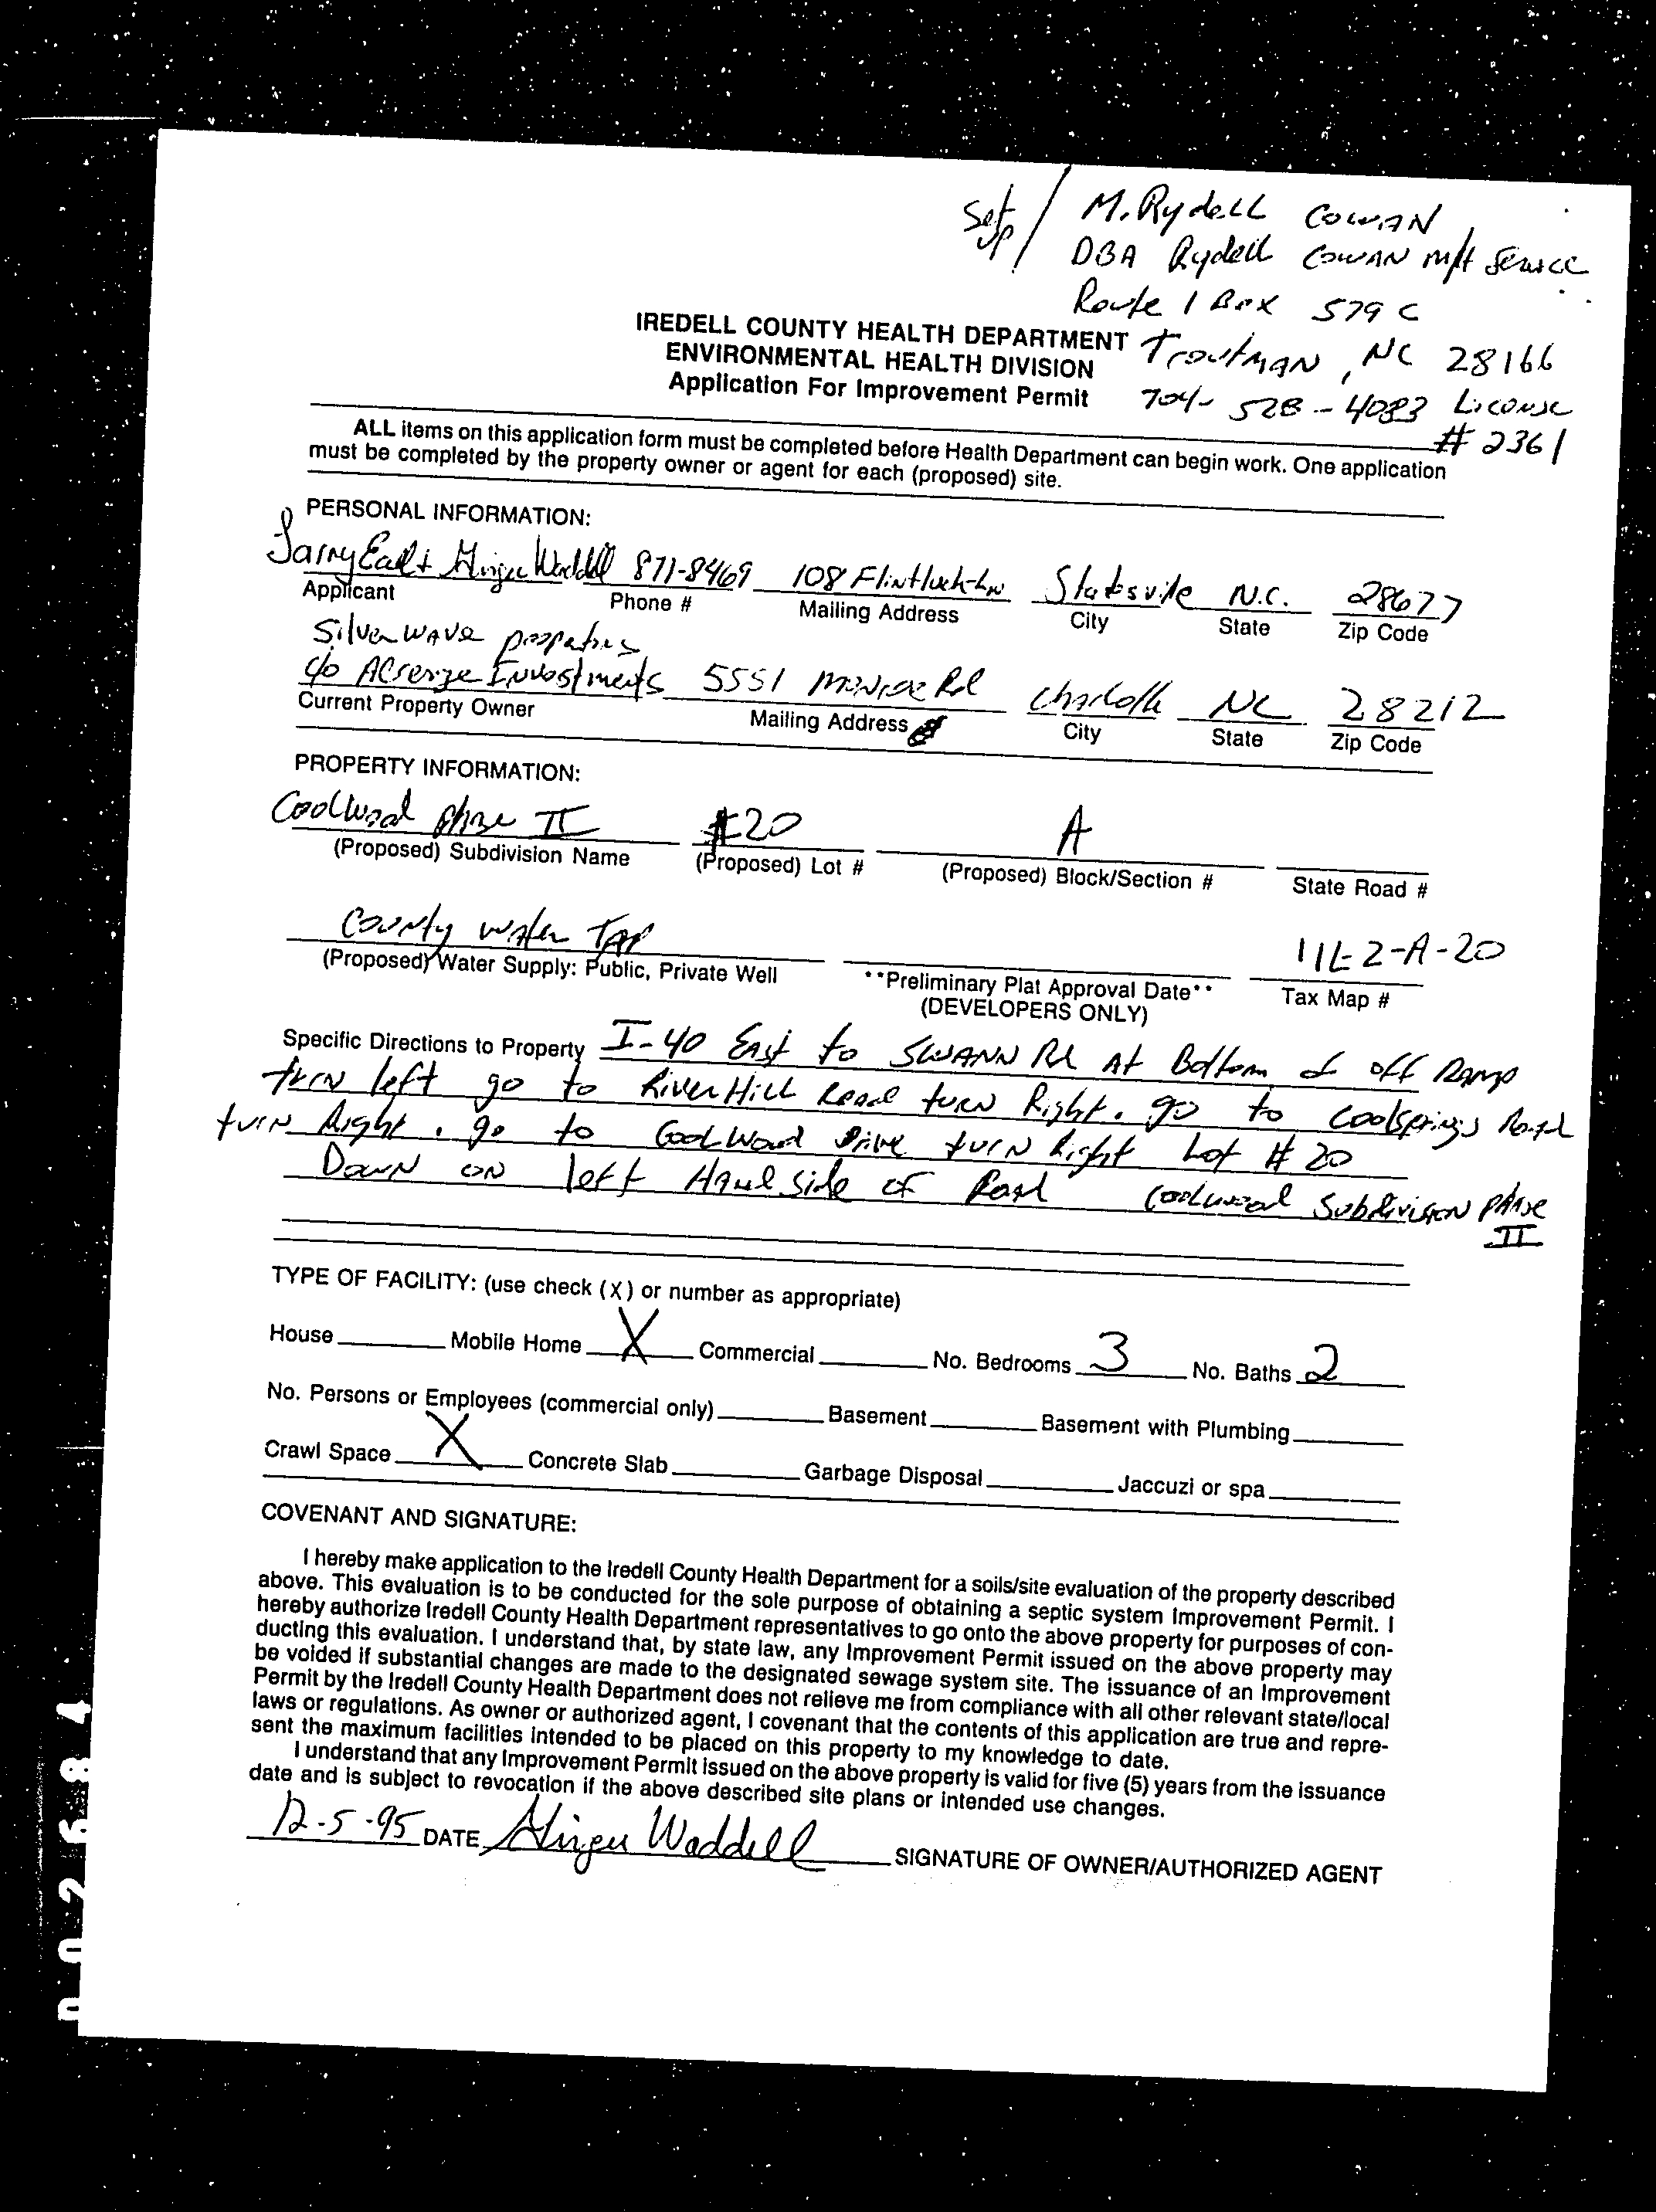 Set up / M. Rydell Cowan
DBA Rydell Cowan M/H Service
Route 1 Box 579 C
Troutman, NC 28166
704-528-4083 License
# 2361
IREDELL COUNTY HEALTH DEPARTMENT
ENVIRONMENTAL HEALTH DIVISION
Application For Improvement Permit
ALL items on this application form must be completed before Health Department can begin work. One application
must be completed by the property owner or agent for each (proposed) site.
PERSONAL INFORMATION:
Larry Earl & Ginger Waddell 871-8469 108 Flintlock Ln Statesville N.C. 28677
Applicant Phone # Mailing Address City State Zip Code
Silverwave properties
c/o Acreage Investments 5551 Monroe Rd Charlotte NC 28212
Current Property Owner Mailing Address City State Zip Code
PROPERTY INFORMATION:
Coolwood phase II #20 A
(Proposed) Subdivision Name (Proposed) Lot # (Proposed) Block/Section # State Road #
County water TAP 11E2-A-20
(Proposed) Water Supply: Public, Private Well **Preliminary Plat Approval Date** Tax Map #
(DEVELOPERS ONLY)
Specific Directions to Property I-40 East to SWANN Rd At Bottom of off Ramp
turn left go to River Hill Road turn Right. go to Coolsprings Road
turn Right. go to Coolwood Drive turn Right Lot # 20
Down on left Hand side of Road Coolwood Subdivision phase
II
TYPE OF FACILITY: (use check (X) or number as appropriate)
House Mobile Home X Commercial No. Bedrooms 3 No. Baths 2
No. Persons or Employees (commercial only) Basement Basement with Plumbing
Crawl Space X Concrete Slab Garbage Disposal Jaccuzi or spa
COVENANT AND SIGNATURE:
I hereby make application to the Iredell County Health Department for a soils/site evaluation of the property described
above. This evaluation is to be conducted for the sole purpose of obtaining a septic system Improvement Permit. I
hereby authorize Iredell County Health Department representatives to go onto the above property for purposes of con-
ducting this evaluation. I understand that, by state law, any Improvement Permit issued on the above property may
be voided if substantial changes are made to the designated sewage system site. The issuance of an Improvement
Permit by the Iredell County Health Department does not relieve me from compliance with all other relevant state/local
laws or regulations. As owner or authorized agent, I covenant that the contents of this application are true and repre-
sent the maximum facilities intended to be placed on this property to my knowledge to date.
I understand that any Improvement Permit issued on the above property is valid for five (5) years from the issuance
date and is subject to revocation if the above described site plans or intended use changes.
12-5-95 DATE Ginger Waddell SIGNATURE OF OWNER/AUTHORIZED AGENT
002684